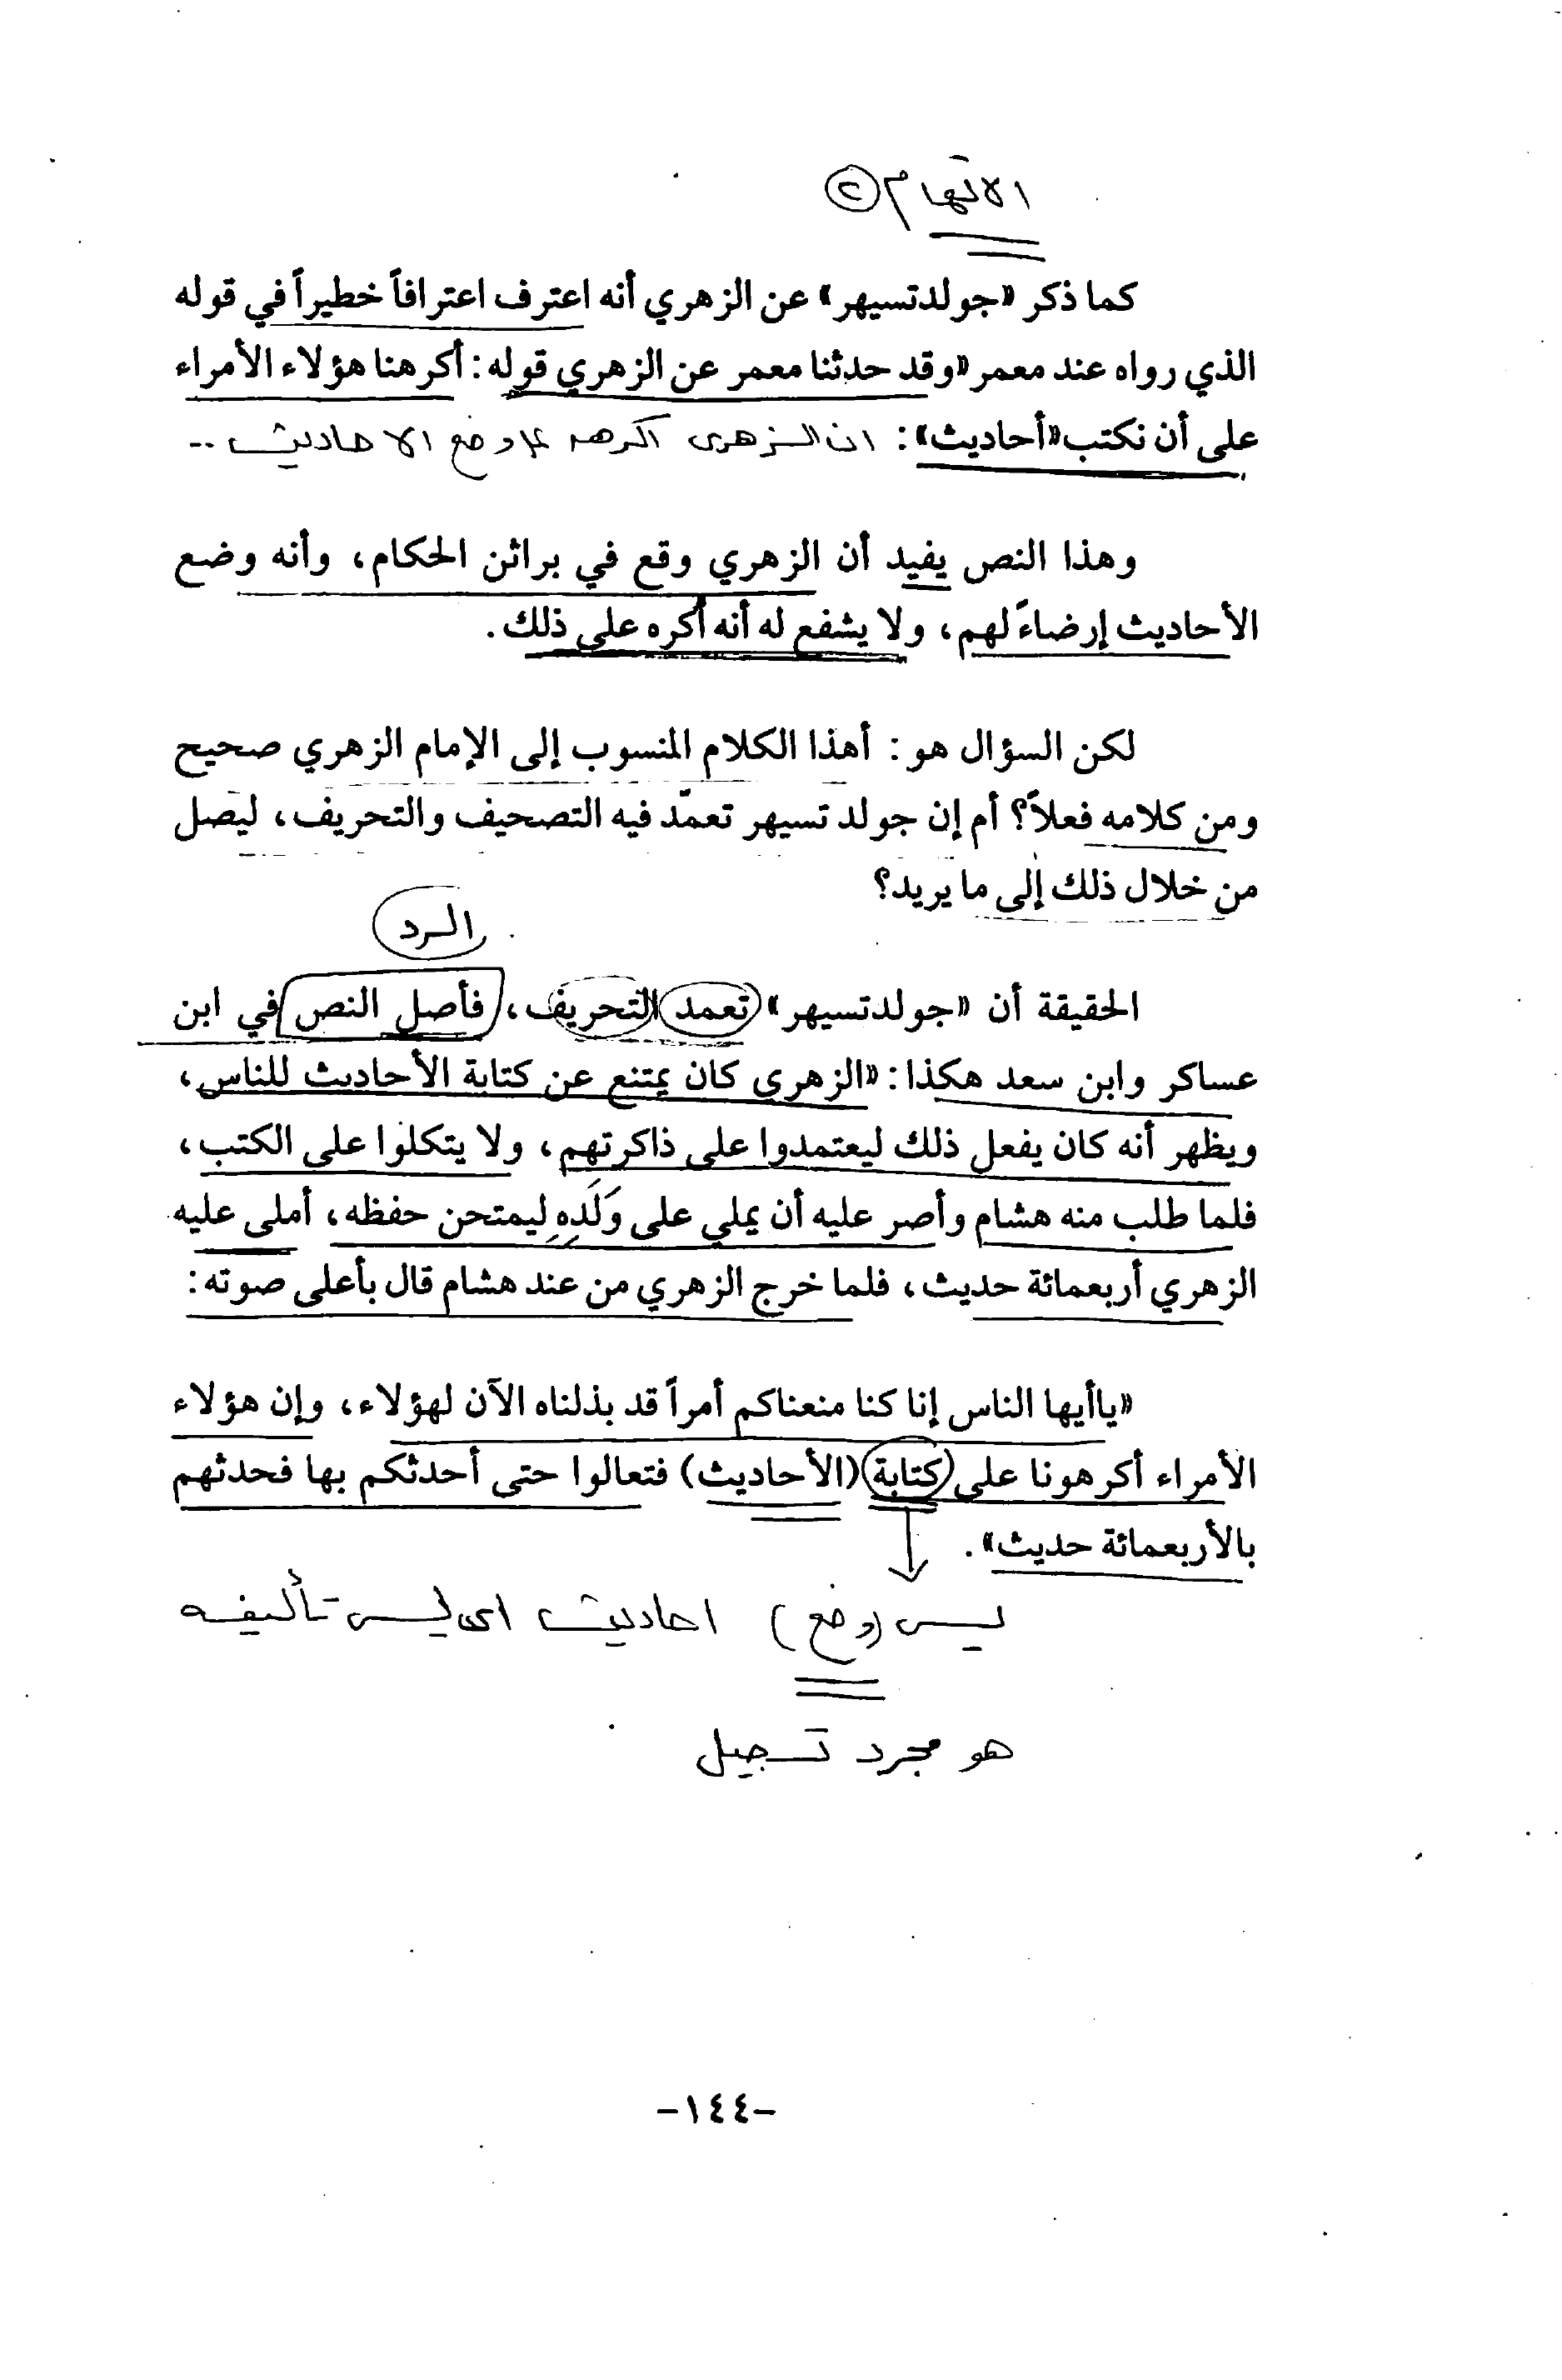 الاتهام ②
كما ذكر «جولدتسيهر» عن الزهري أنه اعترف اعترافاً خطيراً في قوله
الذي رواه عند معمر «وقد حدثنا معمر عن الزهري قوله: أكرهنا هؤلاء الأمراء
على أن نكتب «أحاديث»: ان الزهرى اكره وضع الاحاديث ..
وهذا النص يفيد أن الزهري وقع في براثن الحكام، وأنه وضع
الأحاديث إرضاءً لهم، ولا يشفع له أنه أكره على ذلك.
لكن السؤال هو: أهذا الكلام المنسوب إلى الإمام الزهري صحيح
ومن كلامه فعلاً؟ أم إن جولد تسيهر تعمّد فيه التصحيف والتحريف، ليصل
من خلال ذلك إلى ما يريد؟
الرد
الحقيقة أن «جولدتسيهر» تعمد التحريف، فأصل النص في ابن
عساكر وابن سعد هكذا: «الزهري كان يمتنع عن كتابة الأحاديث للناس،
ويظهر أنه كان يفعل ذلك ليعتمدوا على ذاكرتهم، ولا يتكلوا على الكتب،
فلما طلب منه هشام وأصر عليه أن يملي على وَلَدِهِ ليمتحن حفظه، أملى عليه
الزهري أربعمائة حديث، فلما خرج الزهري من عند هشام قال بأعلى صوته:
«ياأيها الناس إنا كنا منعناكم أمراً قد بذلناه الآن لهؤلاء، وإن هؤلاء
الأمراء أكرهونا على (كتابة) (الأحاديث) فتعالوا حتى أحدثكم بها فحدثهم
بالأربعمائة حديث».
ليس (وضع) احاديث اى ليس تأليفه
هو مجرد تسجيل
-١٤٤-